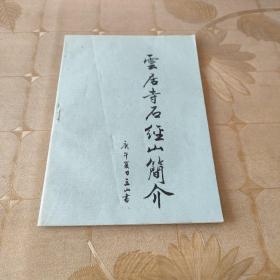 雲居寺石經山簡介
庚午夏日立山書